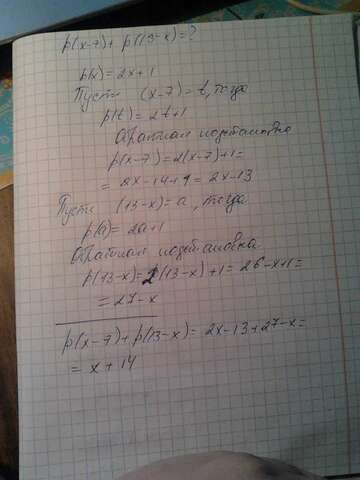 p(x-7)+ p(13-x)=?
p(x)= 2x+1
Пусть (x-7)=t, тогда
p(t)= 2t+1
Обратная подстановка
p(x-7)=2(x-7)+1=
= 2x-14+1=2x-13
Пусть (13-x)=a, тогда
p(a)= 2a+1
Обратная подстановка
p(13-x)=2(13-x)+1=26-x+1=
=27-x
p(x-7)+p(13-x)= 2x-13+27-x=
= x+14